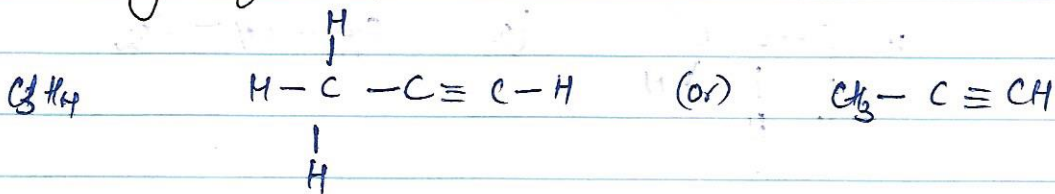 H
|
C3H4 H — C — C ≡ C — H (or) CH3 — C ≡ CH
|
H